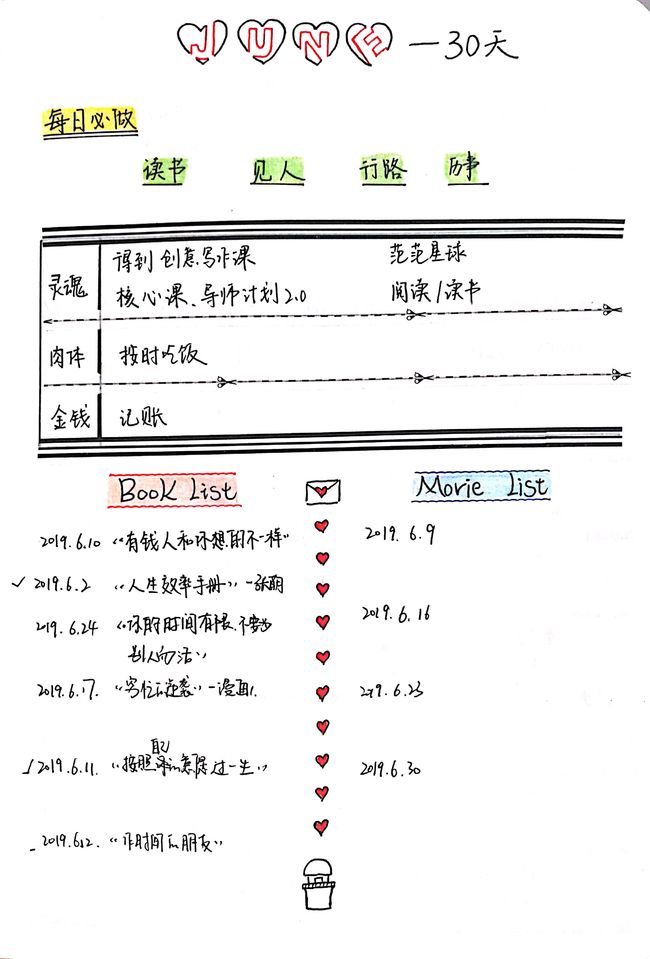 JUNE—30天
每日必做
读书 见人 行路 历事
灵魂 得到 创意写作课 范范星球
核心课、导师计划2.0 阅读/读书
肉体 按时吃饭
金钱 记账
Book List Movie List
2019.6.10 “有钱人和你想的不一样” 2019.6.9
✓ 2019.6.2 “人生效率手册”—张萌
2019.6.24 “你的时间有限、不要为 2019.6.16
别人而活”
2019.6.17. “穷忙的逆袭”—漫画 2019.6.23
✓ 2019.6.11. “按照自己的意愿过一生” 2019.6.30
2019.6.12. “作时间的朋友”